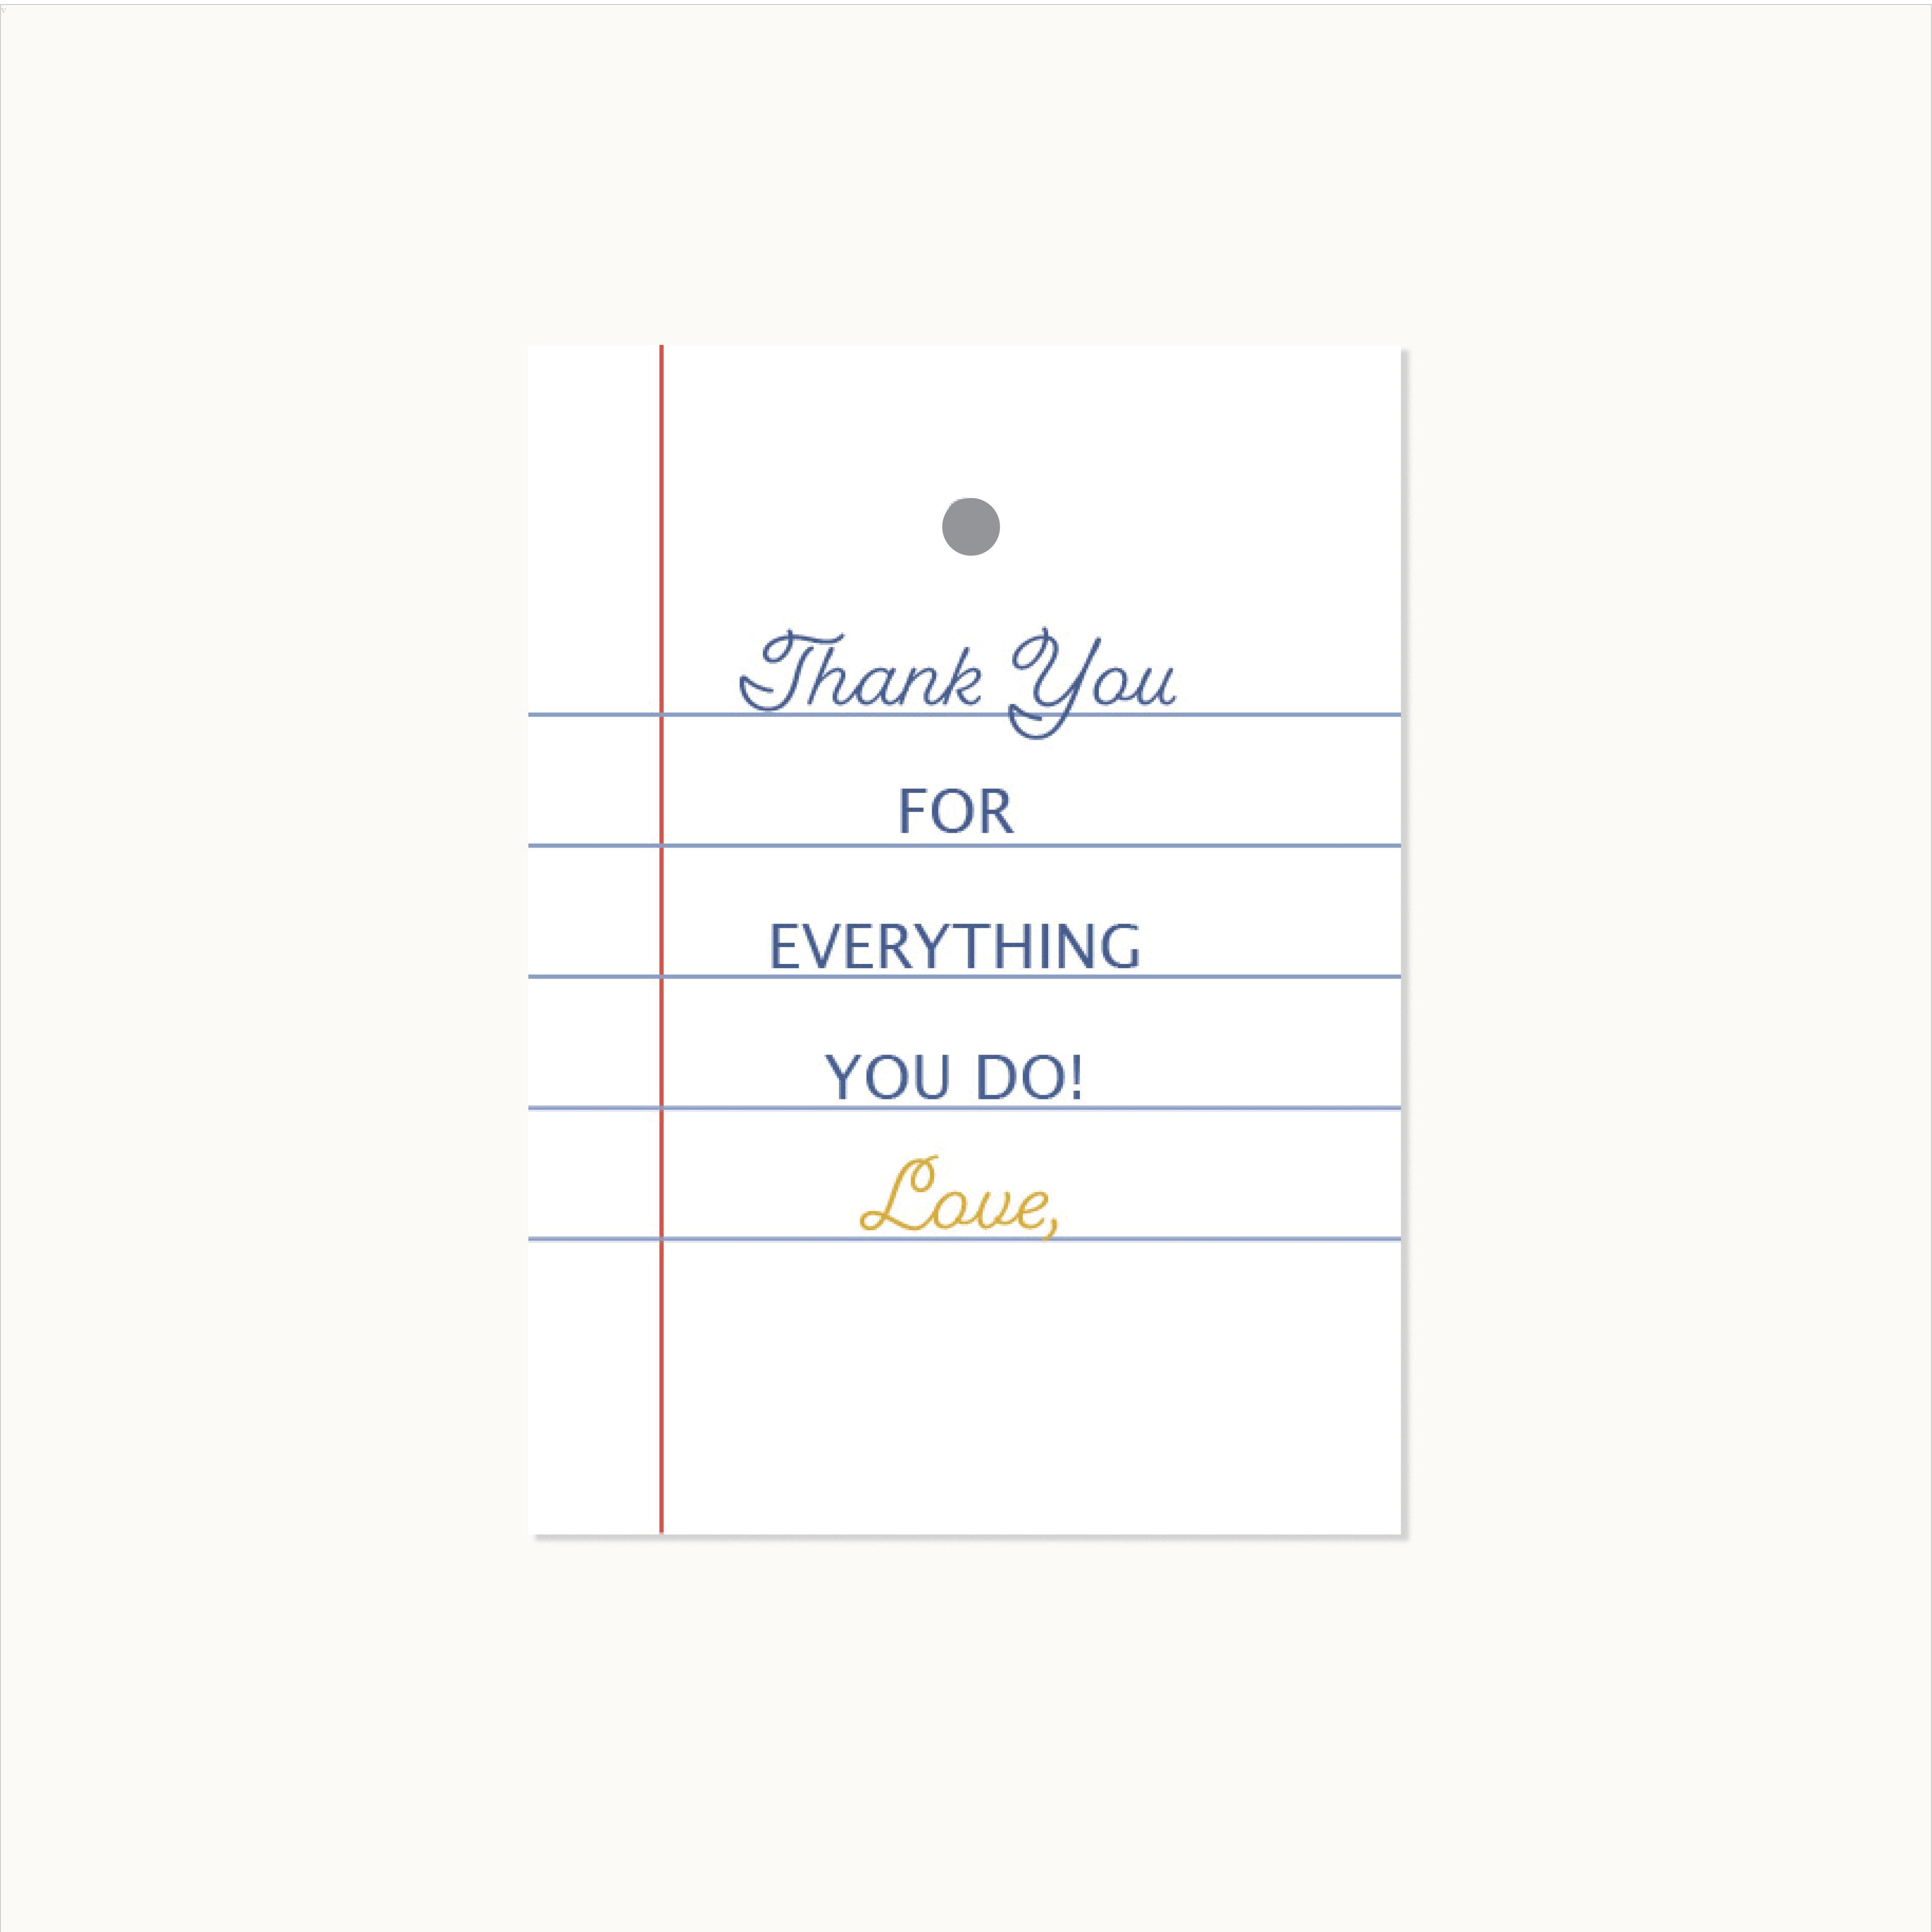 Thank You
FOR
EVERYTHING
YOU DO!
Love,